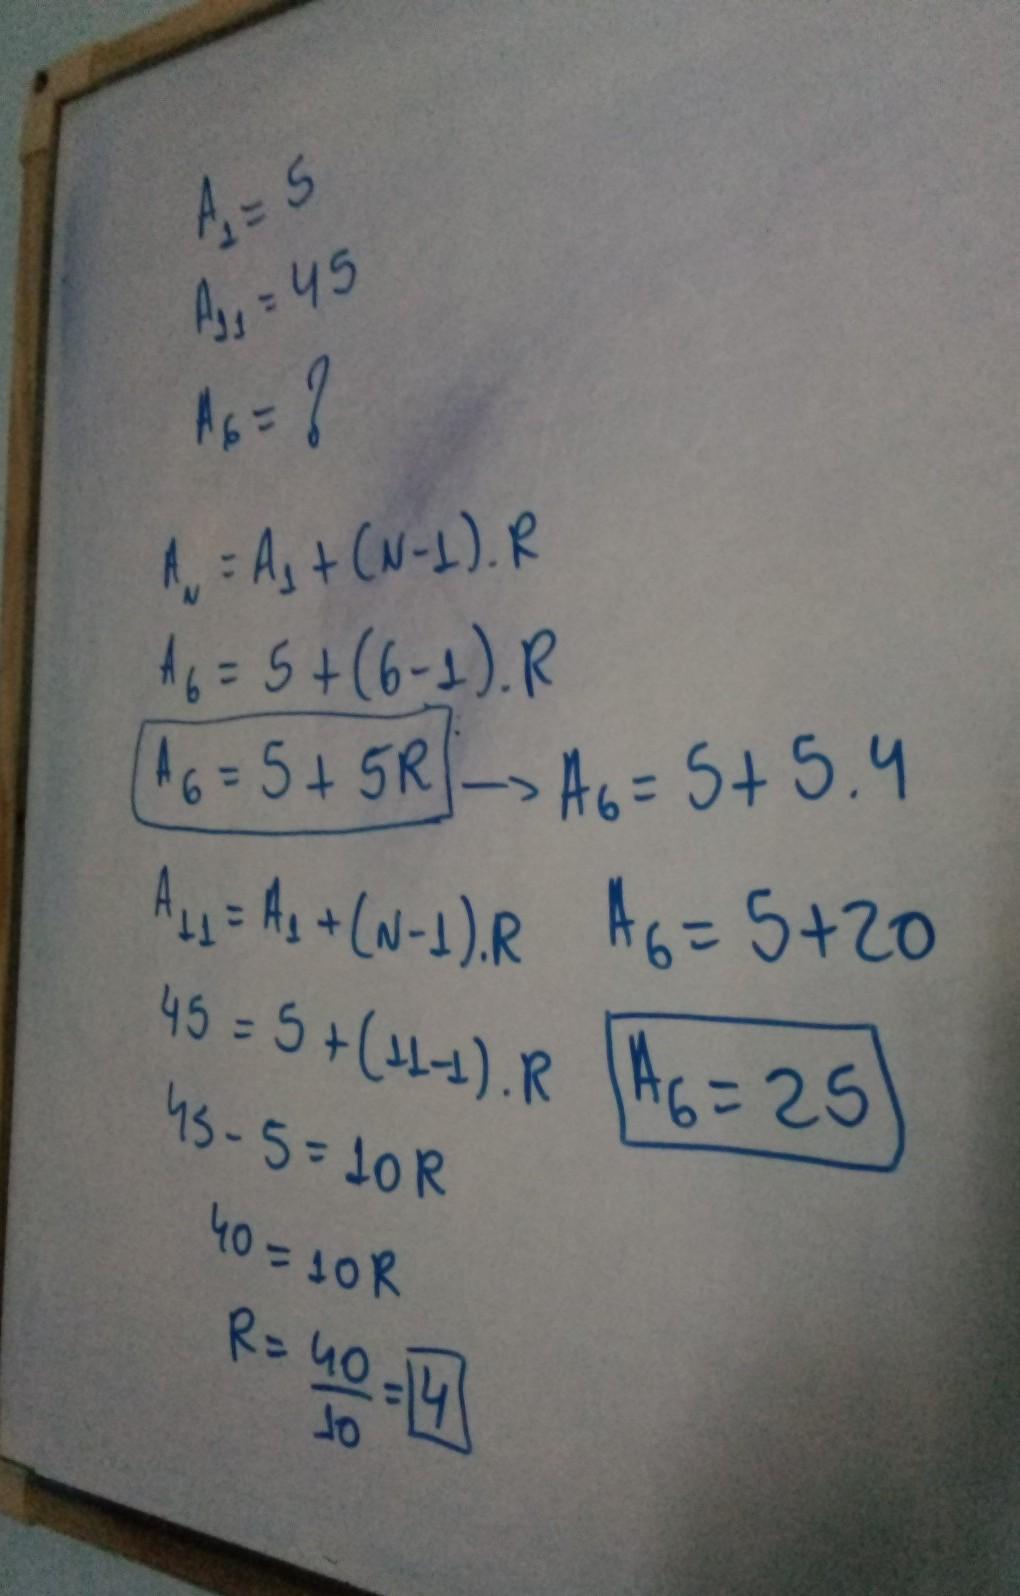 A₁ = 5
A₁₁ = 45
A₆ = ?
Aₙ = A₁ + (N-1).R
A₆ = 5 + (6-1).R
A₆ = 5 + 5R → A₆ = 5 + 5.4
A₁₁ = A₁ + (N-1).R
A₆ = 5+20
45 = 5 + (11-1).R
A₆ = 25
45 - 5 = 10R
40 = 10R
R = 40/10 = 4